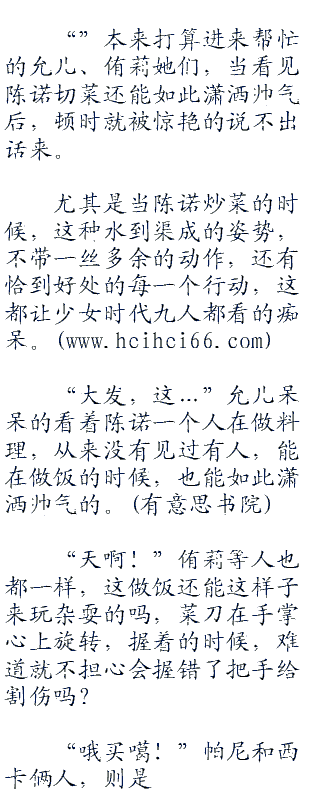 “”本来打算进来帮忙
的允儿、侑莉她们，当看见
陈诺切菜还能如此潇洒帅气
后，顿时就被惊艳的说不出
话来。
尤其是当陈诺炒菜的时
候，这种水到渠成的姿势，
不带一丝多余的动作，还有
恰到好处的每一个行动，这
都让少女时代九人都看的痴
呆。(www.hcihci66.com)
“大发，这…”允儿呆
呆的看着陈诺一个人在做料
理，从来没有见过有人，能
在做饭的时候，也能如此潇
洒帅气的。(有意思书院)
“天啊！”侑莉等人也
都一样，这做饭还能这样子
来玩杂耍的吗，菜刀在手掌
心上旋转，握着的时候，难
道就不担心会握错了把手给
割伤吗？
“哦买噶！”帕尼和西
卡俩人，则是